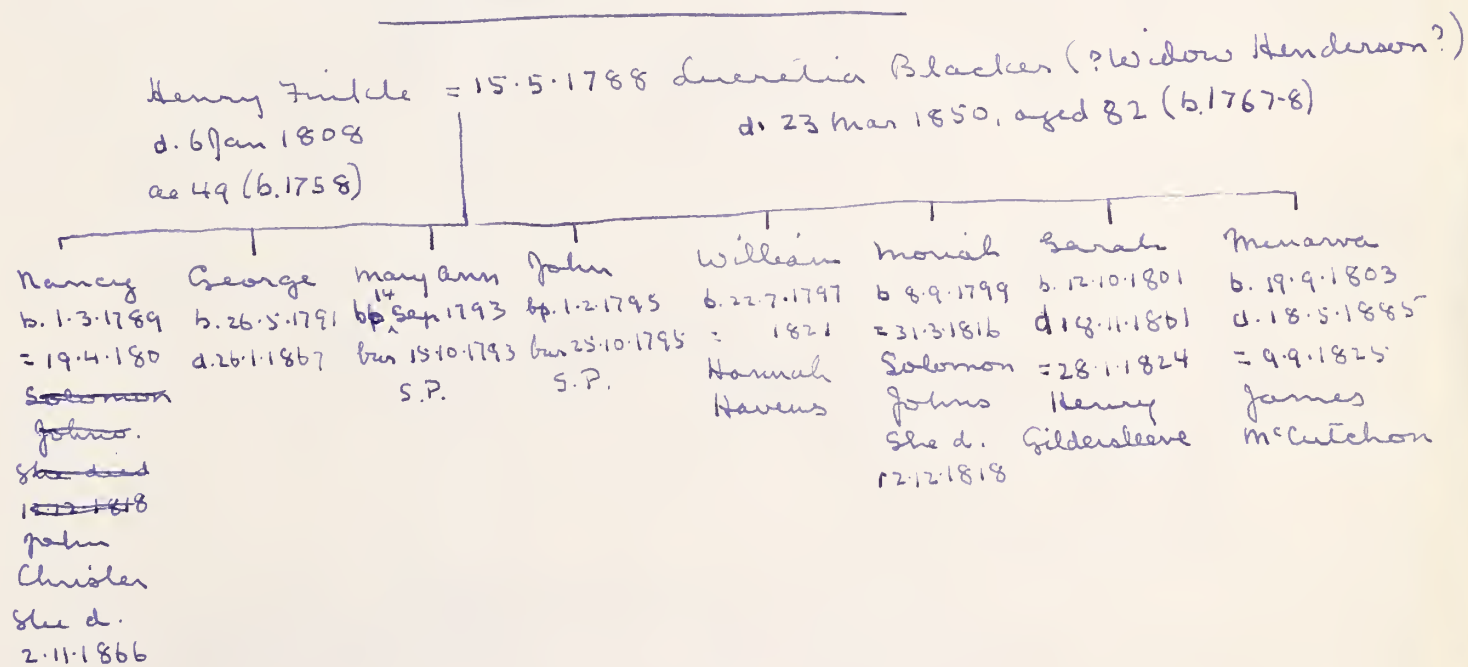 Henry Finkle = 15.5.1788 Lucretia Blacker (?Widow Henderson?)
d. 6 Jan 1808
ae 49 (b.1758)
d. 23 Mar 1850, aged 82 (b.1767-8)
Nancy
b. 1.3.1789
= 19.4.180
Solomon
Johns.
She died
12.12.1818
John
Chrisler
She d.
2.11.1866
George
b. 26.5.1791
d. 26.1.1867
Mary Ann
bp 14 Sep 1793
bur 15.10.1793
S.P.
John
bp. 1.2.1795
bur 25.10.1795
S.P.
William
b. 22.7.1797
= 1821
Hannah
Havens
Moriah
b 8.9.1799
= 31.3.1816
Solomon
Johns
She d.
12.12.1818
Sarah
b. 12.10.1801
= 28.1.1824
Henry
Gildersleeve
Minarva
b. 19.9.1803
d. 18.5.1885
= 9.9.1825
James
McCutchon